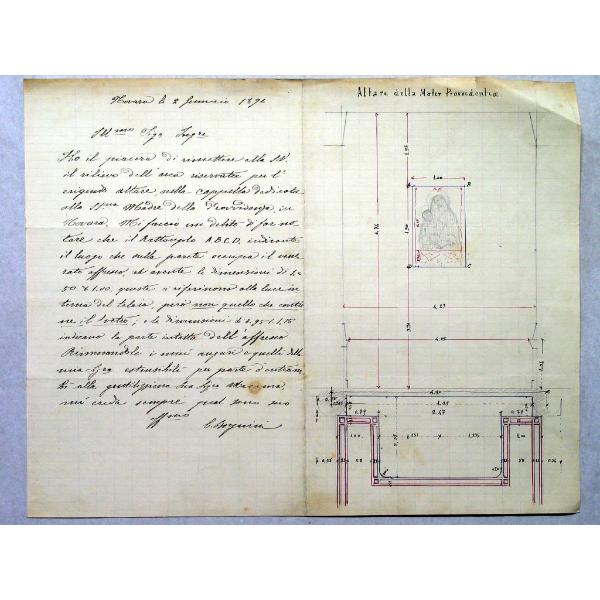 Novara li 2 Gennaio 1892
Ill.mo Sigr Ingre
Ho il piacere di rimettere alla S.V.
il rilievo dell'area riservata per l'
erigendo altare nella cappella dedicata
alla SSma Madre della Provvidenza, in
Novara. Mi faccio un debito di far no-
tare che il Rettangolo A.B.C.D. indicante
il luogo che sulla parete occupa il vene
rato affresco, ed avente le dimensioni di 1,
50 x 1.00, queste si riferiscono alla luce in
terna del telaio, però non quello che contie
ne il vetro; e le dimensioni di
indicano la parte intatta dell'affresco
Rinnovandole i miei auguri e quelli della
mia estensibili per parte d'entram
bi alla gentilissima Sua Sigra
mi creda sempre qual sono suo
affmo
Altare della Mater Provvidentiæ
1.00
B
C
1,50
4,76
4,23
4,05
4.20
4.05
0.89
2.47
0.78
1.00
1,235
1,235
1,00